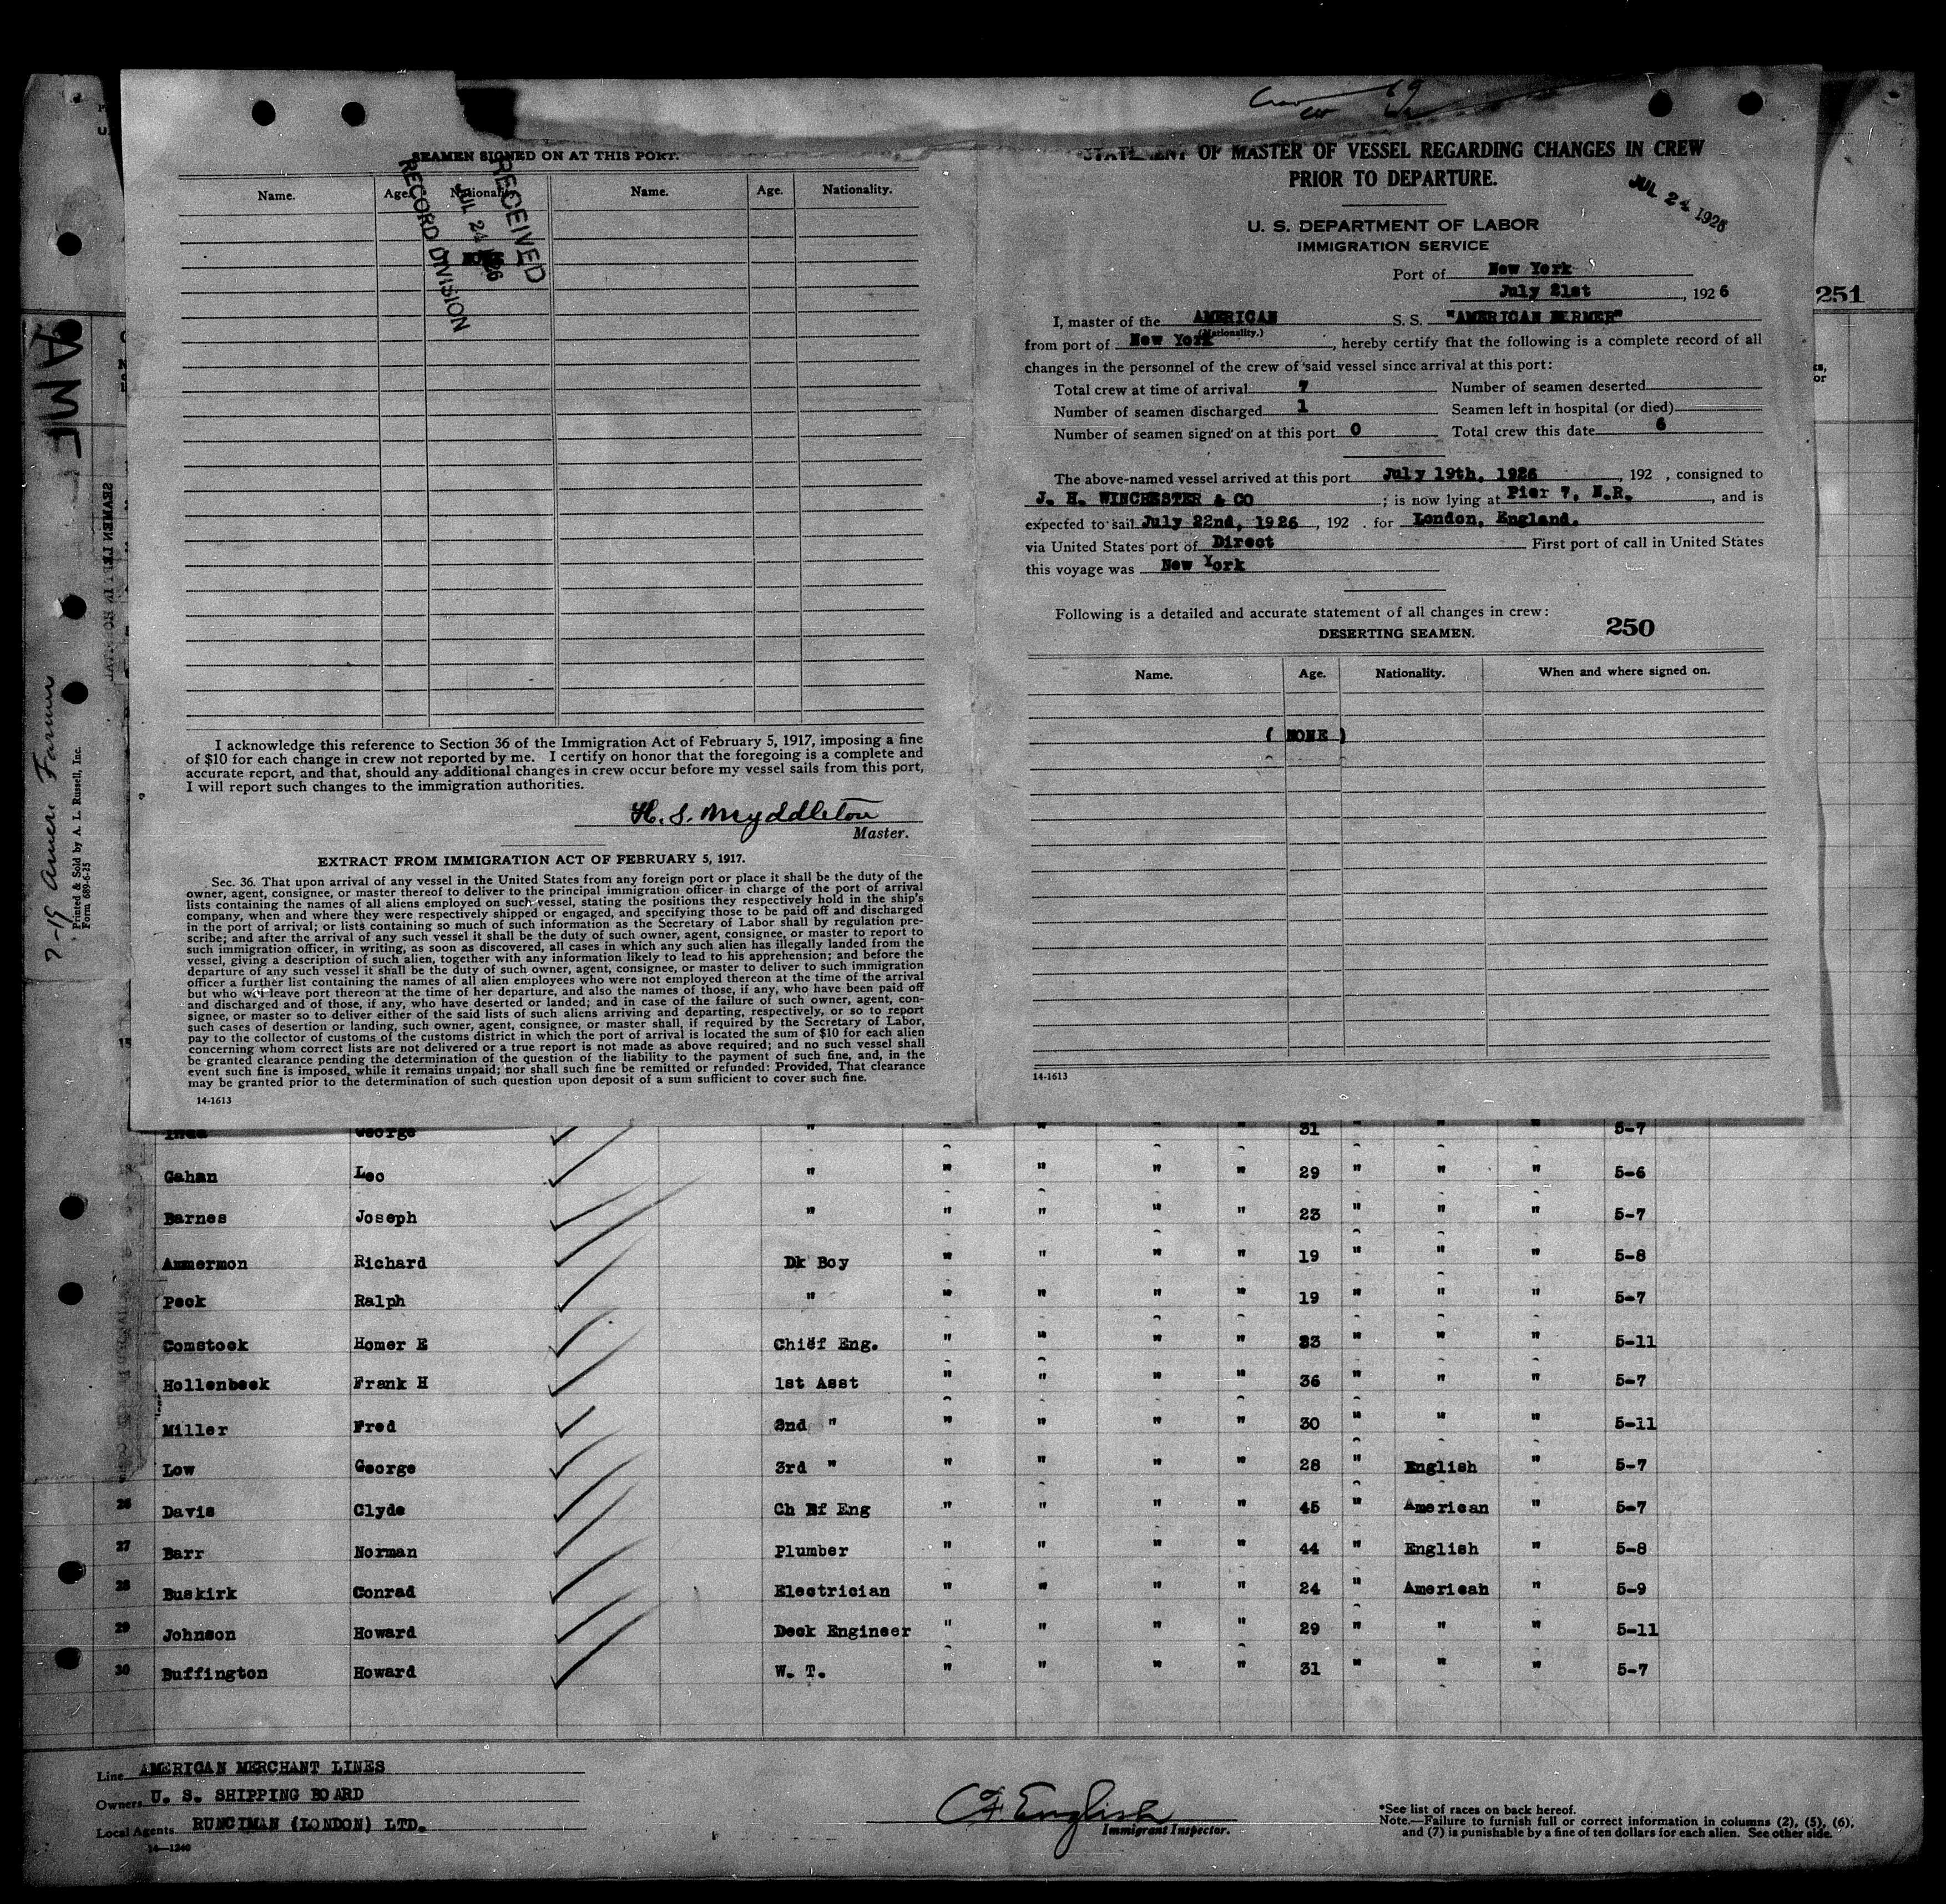 SEAMEN SIGNED ON AT THIS PORT.
Name. Age. Nationality. Name. Age. Nationality.
RECEIVED
JUL 24 1926
RECORD DIVISION
NONE
I acknowledge this reference to Section 36 of the Immigration Act of February 5, 1917, imposing a fine
of $10 for each change in crew not reported by me. I certify on honor that the foregoing is a complete and
accurate report, and that, should any additional changes in crew occur before my vessel sails from this port,
I will report such changes to the immigration authorities.
H. S. Myddleton
Master.
EXTRACT FROM IMMIGRATION ACT OF FEBRUARY 5, 1917.
Sec. 36. That upon arrival of any vessel in the United States from any foreign port or place it shall be the duty of the
owner, agent, consignee, or master thereof to deliver to the principal immigration officer in charge of the port of arrival
lists containing the names of all aliens employed on such vessel, stating the positions they respectively hold in the ship's
company, when and where they were respectively shipped or engaged, and specifying those to be paid off and discharged
in the port of arrival; or lists containing so much of such information as the Secretary of Labor shall by regulation pre-
scribe; and after the arrival of any such vessel it shall be the duty of such owner, agent, consignee, or master to report to
such immigration officer, in writing, as soon as discovered, all cases in which any such alien has illegally landed from the
vessel, giving a description of such alien, together with any information likely to lead to his apprehension; and before the
departure of any such vessel it shall be the duty of such owner, agent, consignee, or master to deliver to such immigration
officer a further list containing the names of all alien employees who were not employed thereon at the time of the arrival
but who will leave port thereon at the time of her departure, and also the names of those, if any, who have been paid off
and discharged and of those, if any, who have deserted or landed; and in case of the failure of such owner, agent, con-
signee, or master so to deliver either of the said lists of such aliens arriving and departing, respectively, or so to report
such cases of desertion or landing, such owner, agent, consignee, or master shall, if required by the Secretary of Labor,
pay to the collector of customs of the customs district in which the port of arrival is located the sum of $10 for each alien
concerning whom correct lists are not delivered or a true report is not made as above required; and no such vessel shall
be granted clearance pending the determination of the question of the liability to the payment of such fine, and, in the
event such fine is imposed, while it remains unpaid; nor shall such fine be remitted or refunded: Provided, That clearance
may be granted prior to the determination of such question upon deposit of a sum sufficient to cover such fine.
14-1613
STATEMENT OF MASTER OF VESSEL REGARDING CHANGES IN CREW
PRIOR TO DEPARTURE.
JUL 24 1926
U. S. DEPARTMENT OF LABOR
IMMIGRATION SERVICE
Port of New York
July 21st, 1926
I, master of the AMERICAN S. S. "AMERICAN FARMER"
(Nationality.)
from port of New York, hereby certify that the following is a complete record of all
changes in the personnel of the crew of said vessel since arrival at this port:
Total crew at time of arrival 7 Number of seamen deserted
Number of seamen discharged 1 Seamen left in hospital (or died)
Number of seamen signed on at this port 0 Total crew this date 6
The above-named vessel arrived at this port July 19th, 1926, 192 , consigned to
J. H. WINCHESTER & CO; is now lying at Pier 7, N.R., and is
expected to sail July 22nd, 1926, 192 . for London, England.
via United States port of Direct First port of call in United States
this voyage was New York
Following is a detailed and accurate statement of all changes in crew:
DESERTING SEAMEN. 250
Name. Age. Nationality. When and where signed on.
( NONE )
14-1613
251
AMF
7-19 Ameri Farmer
Printed & Sold by A. L. Russell, Inc.
Form 689-6-25
George " " " " " 31 " " " 5-7
Gahan Leo " " " " " 29 " " " 5-6
Barnes Joseph " " " " " 23 " " " 5-7
Ammermon Richard Dk Boy " " " " 19 " " " 5-8
Peck Ralph " " " " " 19 " " " 5-7
Comstock Homer E Chief Eng. " " " " 33 " " " 5-11
Hollenbeck Frank H 1st Asst " " " " 36 " " " 5-7
Miller Fred 2nd " " " " " 30 " " " 5-11
Low George 3rd " " " " " 28 " English " 5-7
26 Davis Clyde Ch Rf Eng " " " " 45 " American " 5-7
27 Barr Norman Plumber " " " " 44 " English " 5-8
28 Buskirk Conrad Electrician " " " " 24 " American " 5-9
29 Johnson Howard Deck Engineer " " " " 29 " " " 5-11
30 Buffington Howard W. T. " " " " 31 " " " 5-7
Line AMERICAN MERCHANT LINES
Owners U. S. SHIPPING BOARD
Local Agents RUNCIMAN (LONDON) LTD.
14-1240
English
Immigrant Inspector.
*See list of races on back hereof.
Note.—Failure to furnish full or correct information in columns (2), (5), (6),
and (7) is punishable by a fine of ten dollars for each alien. See other side.